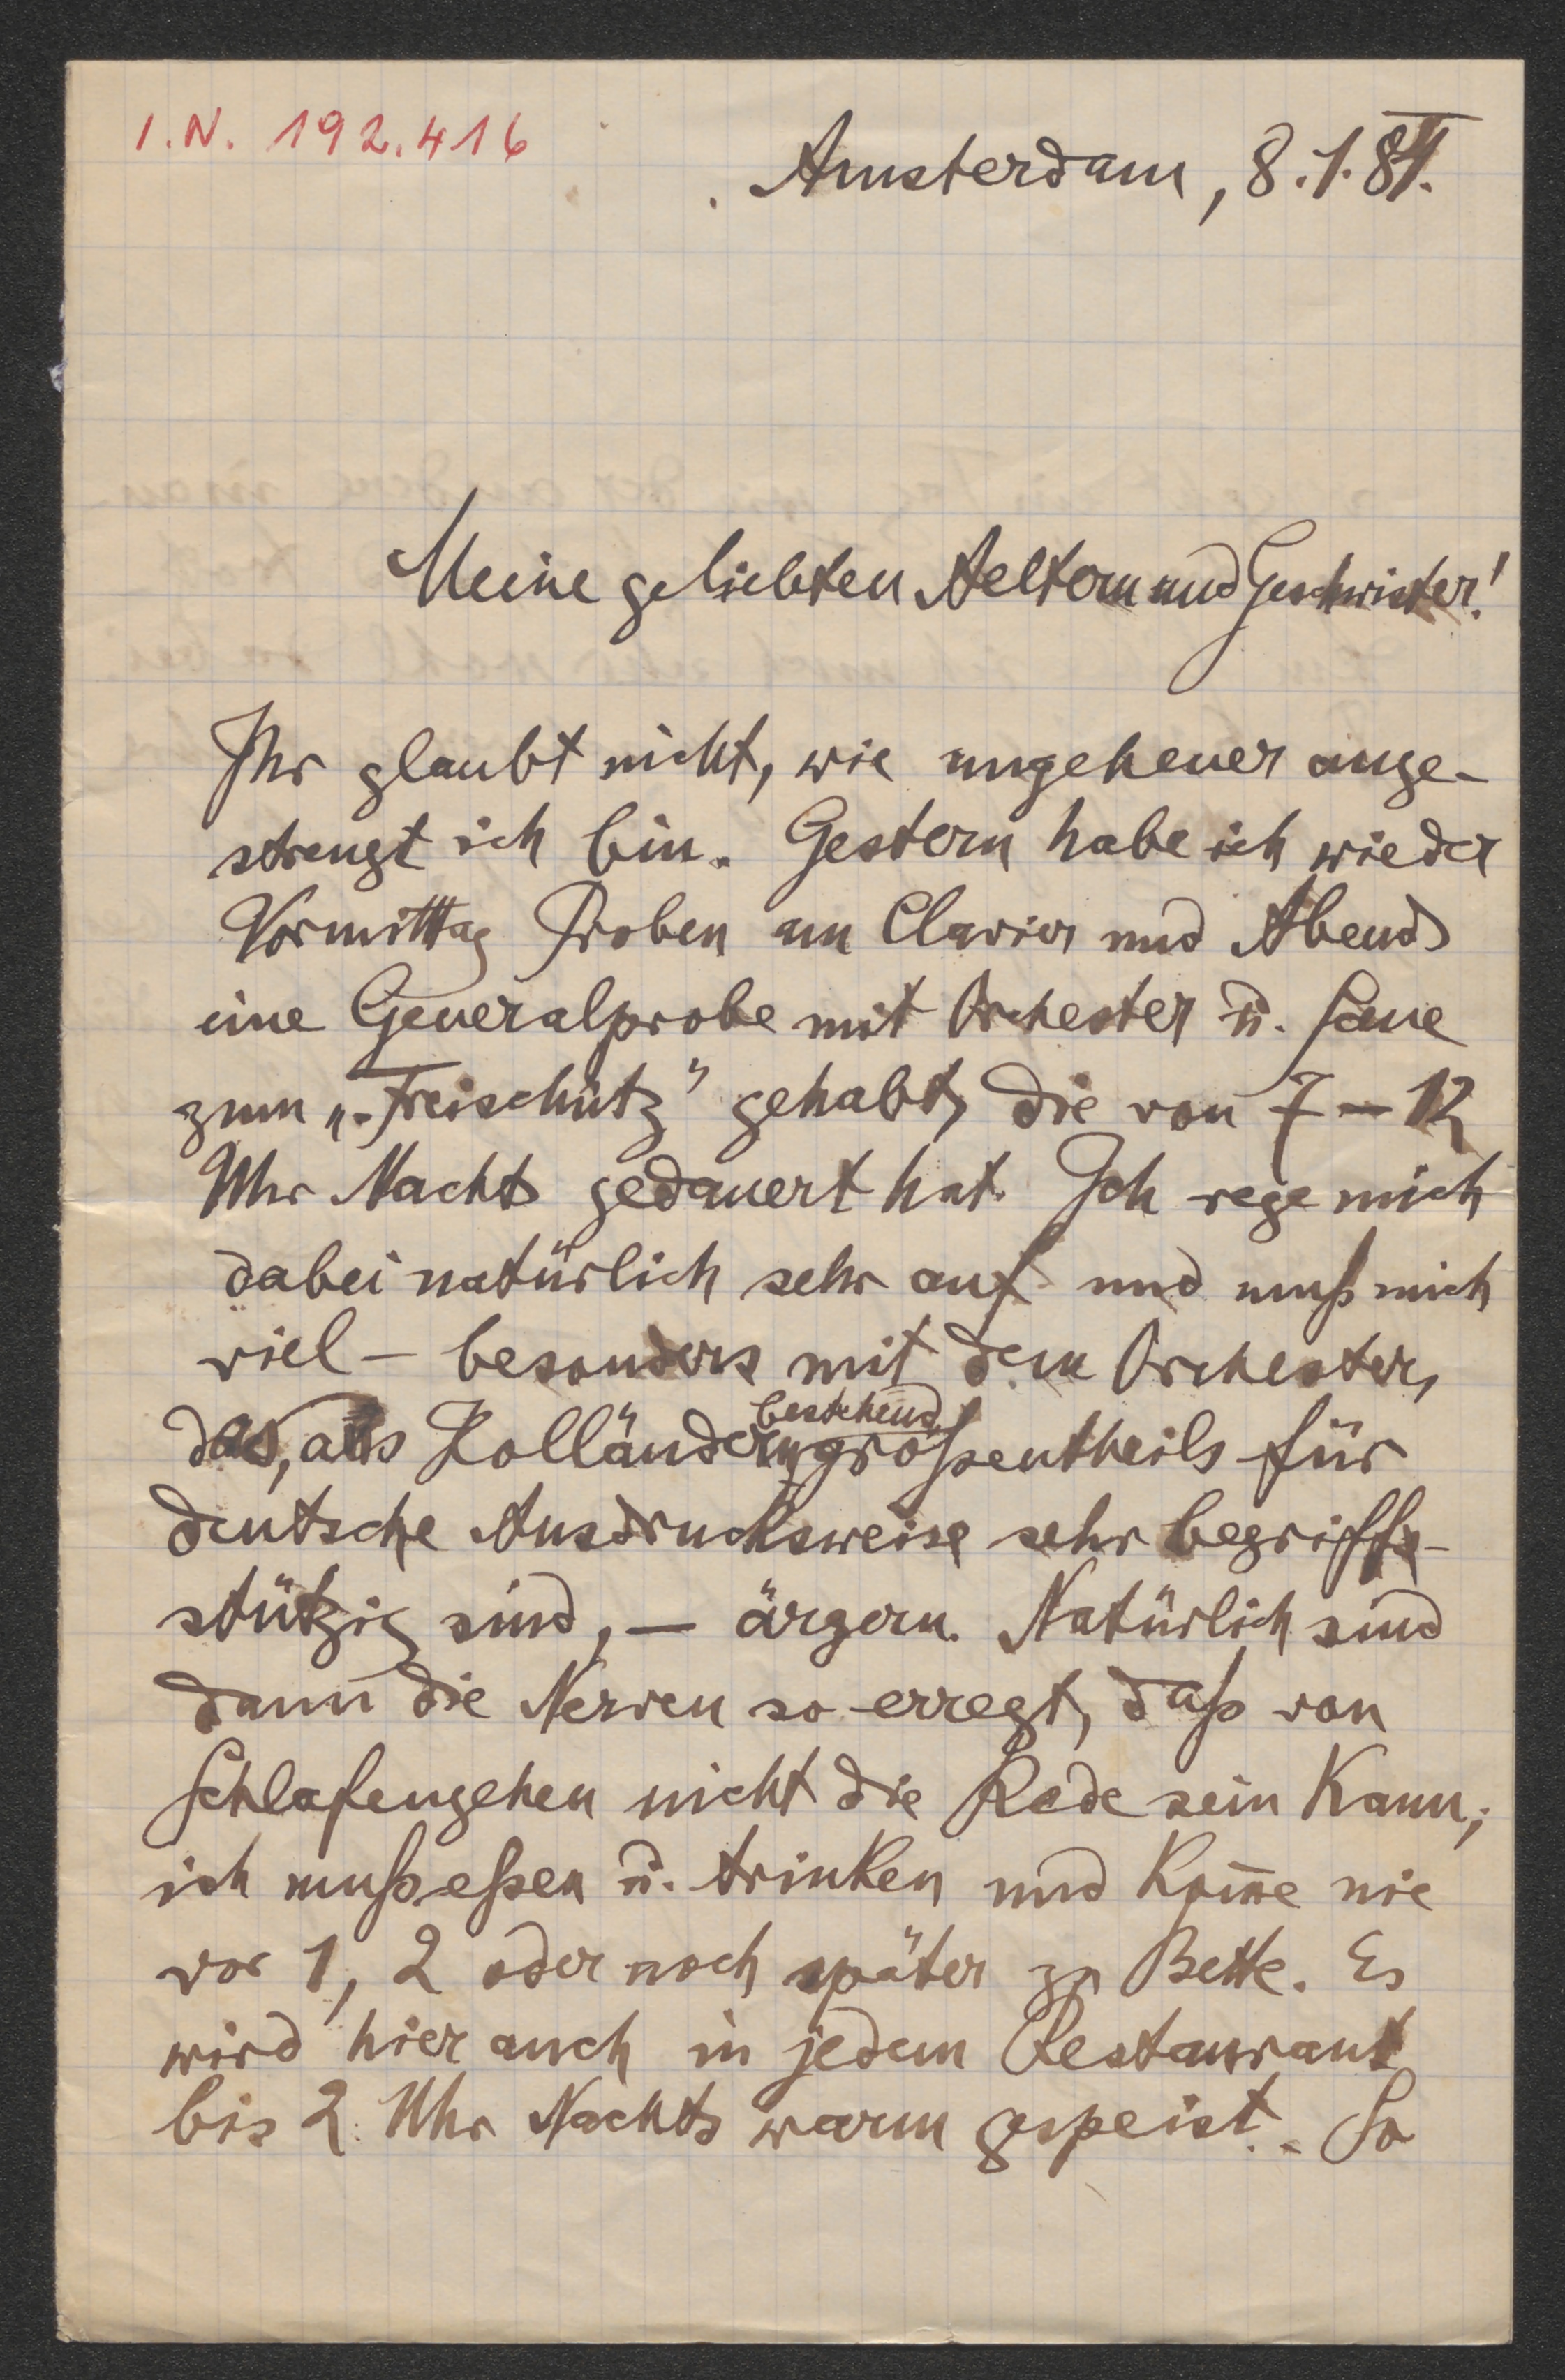 I.N. 192.416
Amsterdam, 8.1.84.
Meine geliebten Aeltern und Geschwister!
Ihr glaubt nicht, wie ungeheuer ange-
strengt ich bin. Gestern habe ich wieder
Vormittag Proben am Clavier und Abends
eine Generalprobe mit Orchester u. Scene
zum „Freischütz" gehabt, die von 7–12
Uhr Nachts gedauert hat. Ich rege mich
dabei natürlich sehr auf und muß mich
viel – besonders mit dem Orchester,
bestehend
das, aus Holländern größentheils für
deutsche Ausdrucksweise sehr begriffs-
stützig sind, – ärgern. Natürlich sind
dann die Nerven so erregt, daß von
Schlafengehen nicht die Rede sein kann;
ich muß eßen u. trinken und kom̄e nie
vor 1, 2 oder noch später zu Bette. Es
wird hier auch in jedem Restaurant
bis 2 Uhr Nachts warm gespeist. So